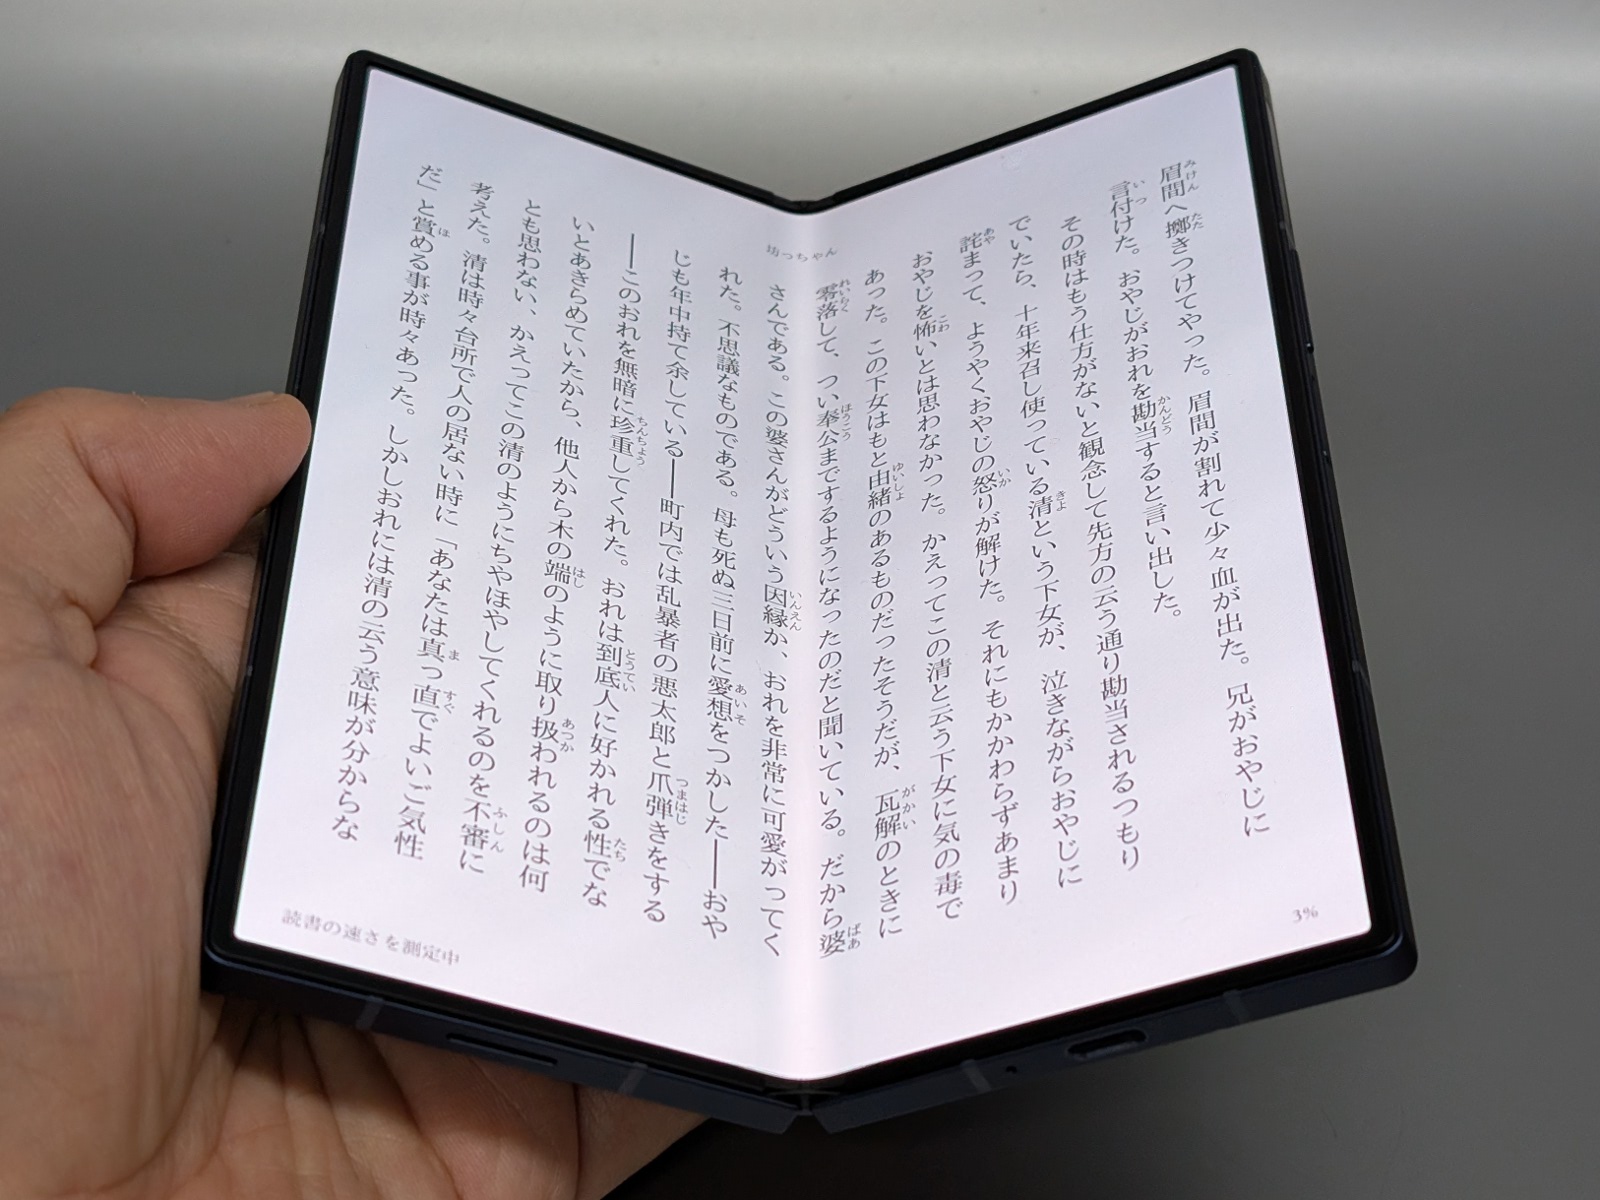 坊っちゃん
眉間へ擲きつけてやった。眉間が割れて少々血が出た。兄がおやじに
言付けた。おやじがおれを勘当すると言い出した。
その時はもう仕方がないと観念して先方の云う通り勘当されるつもり
でいたら、十年来召し使っている清という下女が、泣きながらおやじに
詫まって、ようやくおやじの怒りが解けた。それにもかかわらずあまり
おやじを怖いとは思わなかった。かえってこの清と云う下女に気の毒で
あった。この下女はもと由緒のあるものだったそうだが、瓦解のときに
零落して、つい奉公までするようになったのだと聞いている。だから婆
さんである。この婆さんがどういう因縁か、おれを非常に可愛がってく
れた。不思議なものである。母も死ぬ三日前に愛想をつかした――おや
じも年中持て余している――町内では乱暴者の悪太郎と爪弾きをする
――このおれを無暗に珍重してくれた。おれは到底人に好かれる性でな
いとあきらめていたから、他人から木の端のように取り扱われるのは何
とも思わない、かえってこの清のようにちやほやしてくれるのを不審に
考えた。清は時々台所で人の居ない時に「あなたは真っ直でよいご気性
だ」と賞める事が時々あった。しかしおれには清の云う意味が分からな
読書の速さを測定中
3%